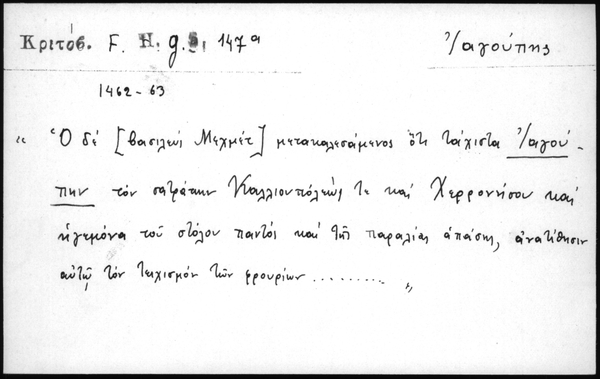 Κριτόβ. F. H. g. S. 147ᵃ Ἰαγούπης
1462-63
" Ὁ δέ [βασιλεύς Μεχμέτ] μετακαλεσάμενος ὅτι τάχιστα Ἰαγού-
πην τόν σατράπην Καλλιουπόλεώς τε καί Χερρονήσου καί
ἡγεμόνα τοῦ στόλου παντός καί τῆς παραλίας ἁπάσης, ἀνατίθησιν
αὐτῷ τόν τειχισμόν τῶν φρουρίων .......... "